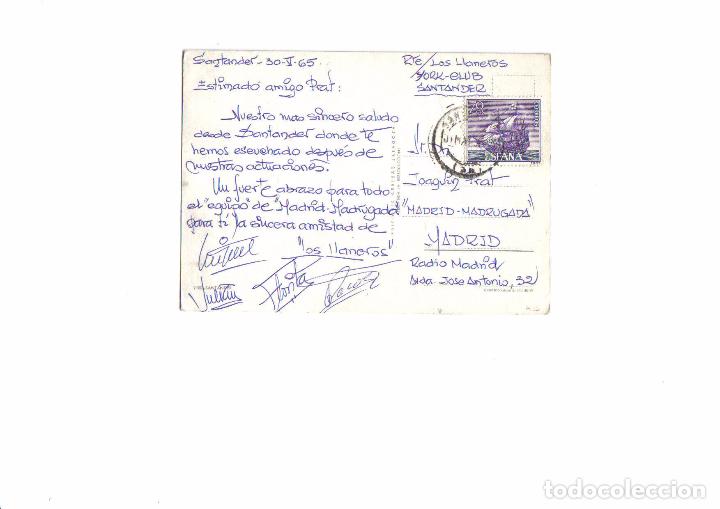 Santander - 30-V-65
Estimado amigo Prat:
Nuestro mas sincero saludo
desde Santander donde te
hemos escuchado después de
nuestras actuaciones.
Un fuerte abrazo para todo
el "equipo" de "Madrid-Madrugada"
para ti la sincera amistad de
"Los Llaneros"
Julian
Rte/ Los Llaneros
YORK-CLUB
SANTANDER
ESPAÑA
Sr. D.
Joaquin Prat
"MADRID-MADRUGADA"
MADRID
Radio Madrid
Avda Jose Antonio, 32
todocoleccion.net